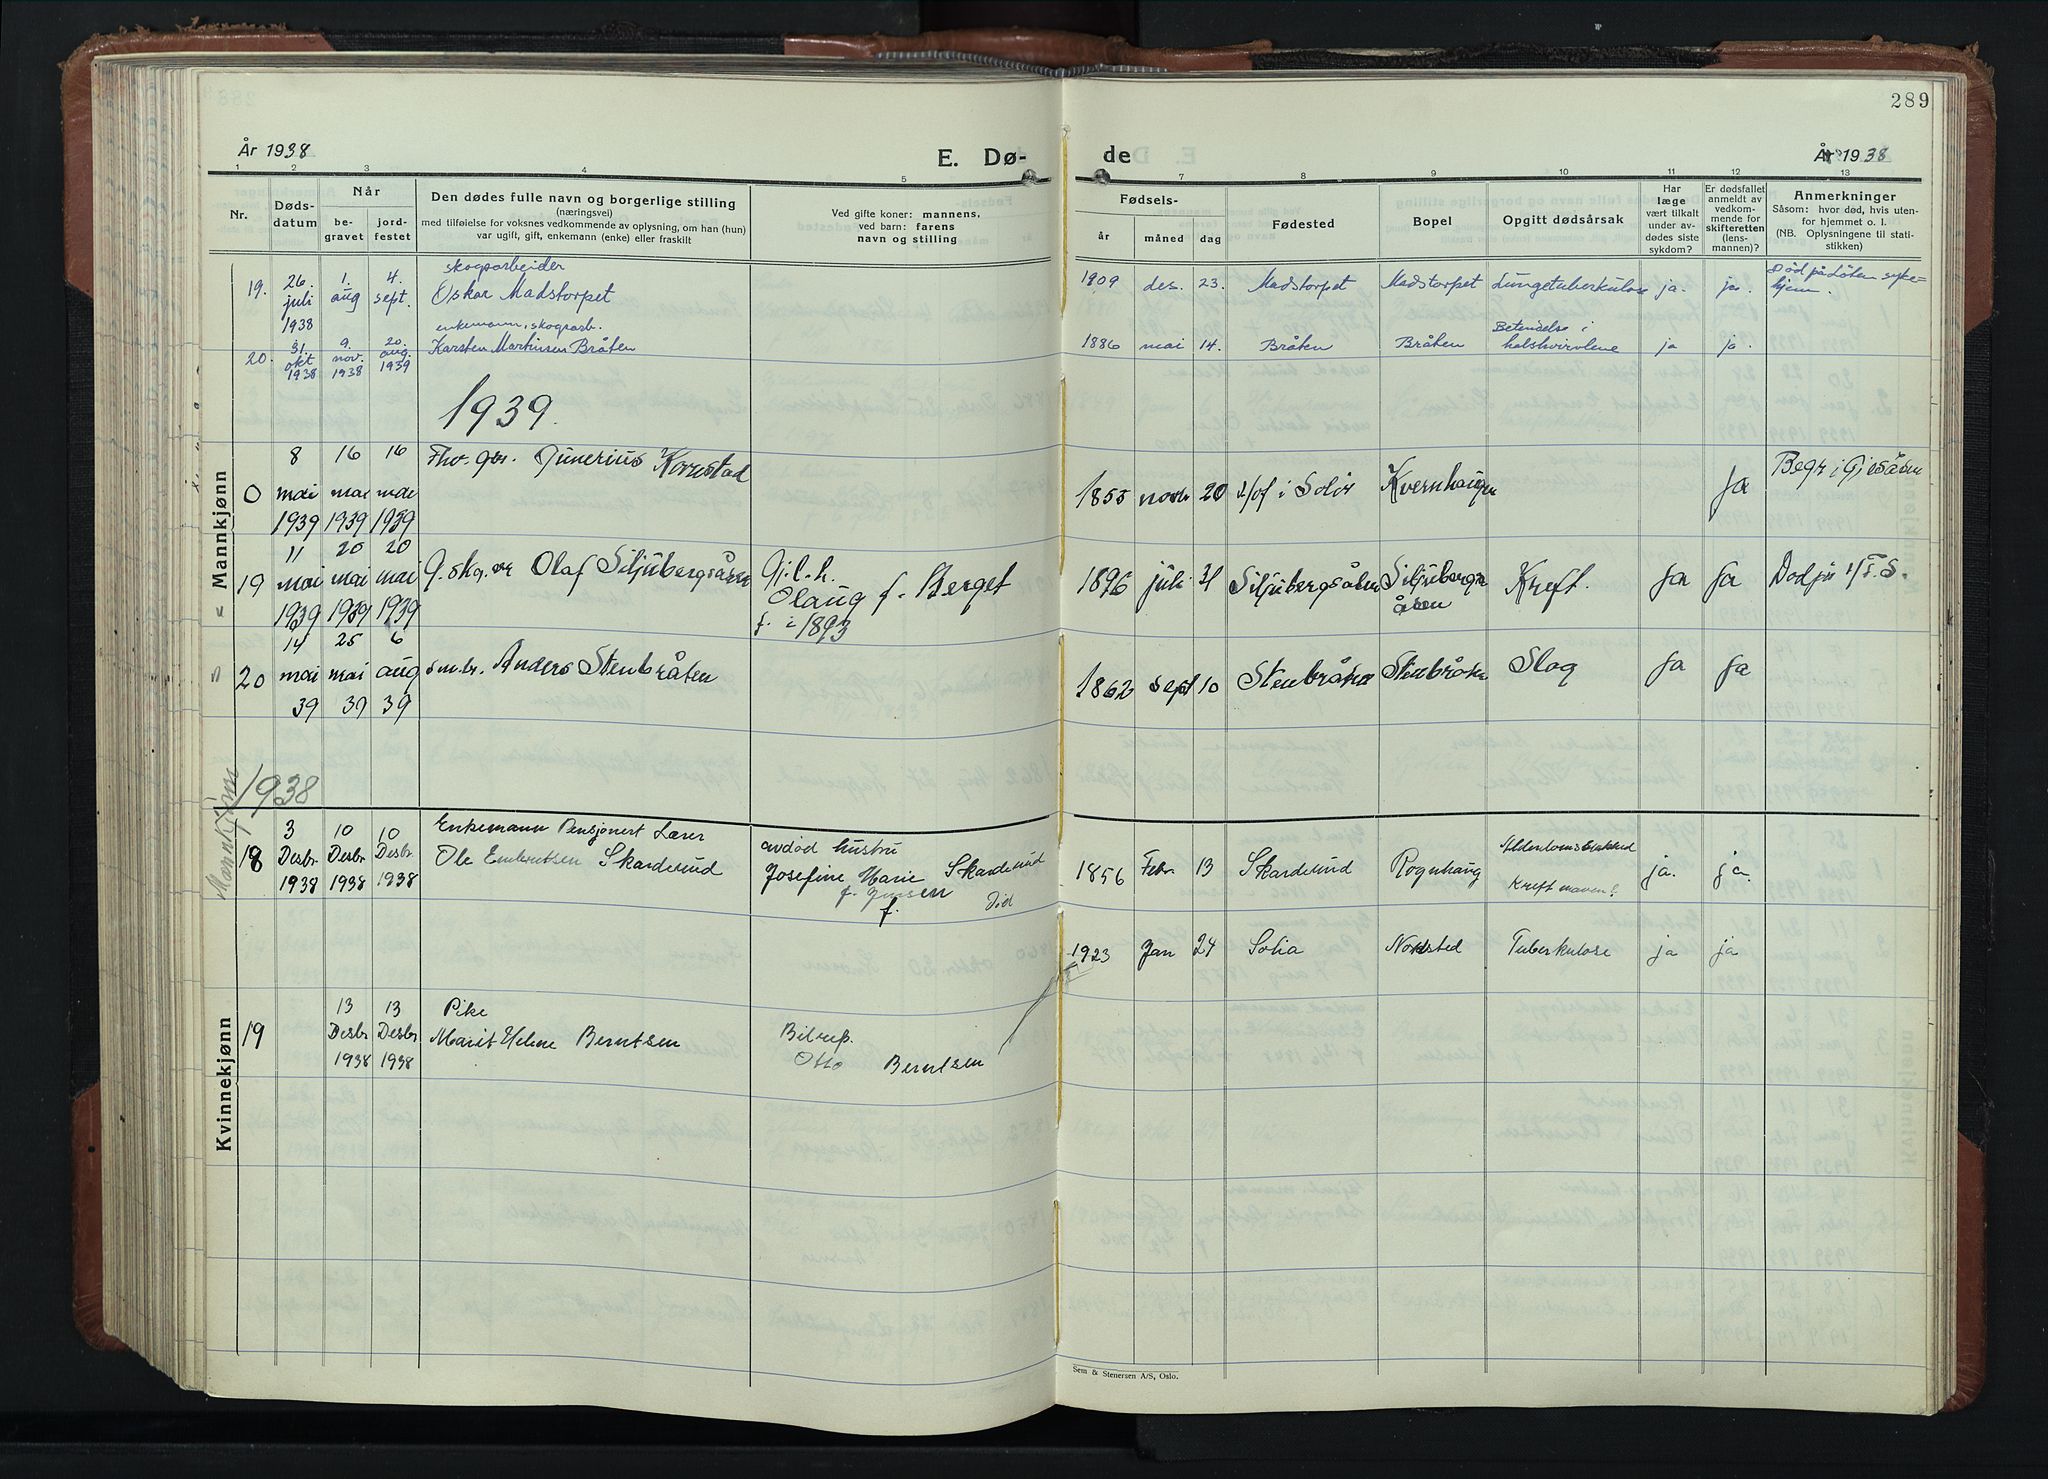 289
År 1938
E. Dø-
de
År 1938
1 2 3 4 5 7 8 9 10 11 12 13
Nr.
Døds-
datum
Når
be-
gravet
jord-
festet
Den dødes fulle navn og borgerlige stilling
(næringsvei)
med tilføielse for voksnes vedkommende av oplysning, om han (hun)
var ugift, gift, enkemann (enke) eller fraskilt
Ved gifte koner: mannens,
ved barn: farens
navn og stilling
Fødsels-
år måned dag
Fødested
Bopel
Opgitt dødsårsak
Har
læge
vært tilkalt
under av-
dødes siste
sykdom?
Er dødsfallet
anmeldt av
vedkom-
mende for
skifteretten
(lens-
mannen)?
Anmerkninger
Såsom: hvor død, hvis uten-
for hjemmet o. l.
(NB. Oplysningene til stati-
stikken)
Mannkjønn
19. 26. juli 1938 1. aug 4. sept.
skogsarbeider
Oskar Madstorpet
1909 des. 23. Madstorpet Madstorpet Lungetuberkulose ja. ja.
Død på Løten syke-
hjem.
20. 31. okt 1938 9. nov. 1938 20. aug. 1939
enkemann, skogsarb.
Karsten Martinsen Bråten
1886 mai 14. Bråten Bråten
Betendelse i
halshvirvlene
ja ja.
1939.
0 8 mai 1939 16 mai 1939 16 mai 1939
Fhv. gbr. Junerius
1855 novbr 20 i Solør Kvernhaugen
Ja
Begr i Gjesåsen
19 11 mai 1939 20 mai 1939 20 mai 1939
G. skg. Olaf Siljubergsåsen
Gj. l. h.
Olaug f. Berget
f. i 1893
1896 juli 31 Siljubergsåsen
Siljubergs
åsen
Kreft. Ja Ja
20 14 mai 39 25 mai 39 6 aug 39
smbr. Anders Stenbråten
1862 sept 10 Stenbråten Stenbråten Slag Ja Ja
Mannkjønn 1938
18 3 Desbr 1938 10 Desbr 1938 10 Desbr. 1938
Enkemann Pensjonert Lærer
Ole Embretsen Skarderud
avdød hustru
Josefine Marie Skarderud
f. Jensen
f.
1856 Febr. 13 Skarderud Rognhaug
Kreft maven?
ja. ja.
1923 Jan 24 Solia Nordsted Tuberkulose ja ja
Kvinnekjønn
19 13 Desbr 1938 13 Desbr 1938
Pike
Marit Helene Berntsen
Bilrep.
Otto Berntsen
Sem & Stenersen A/S, Oslo.